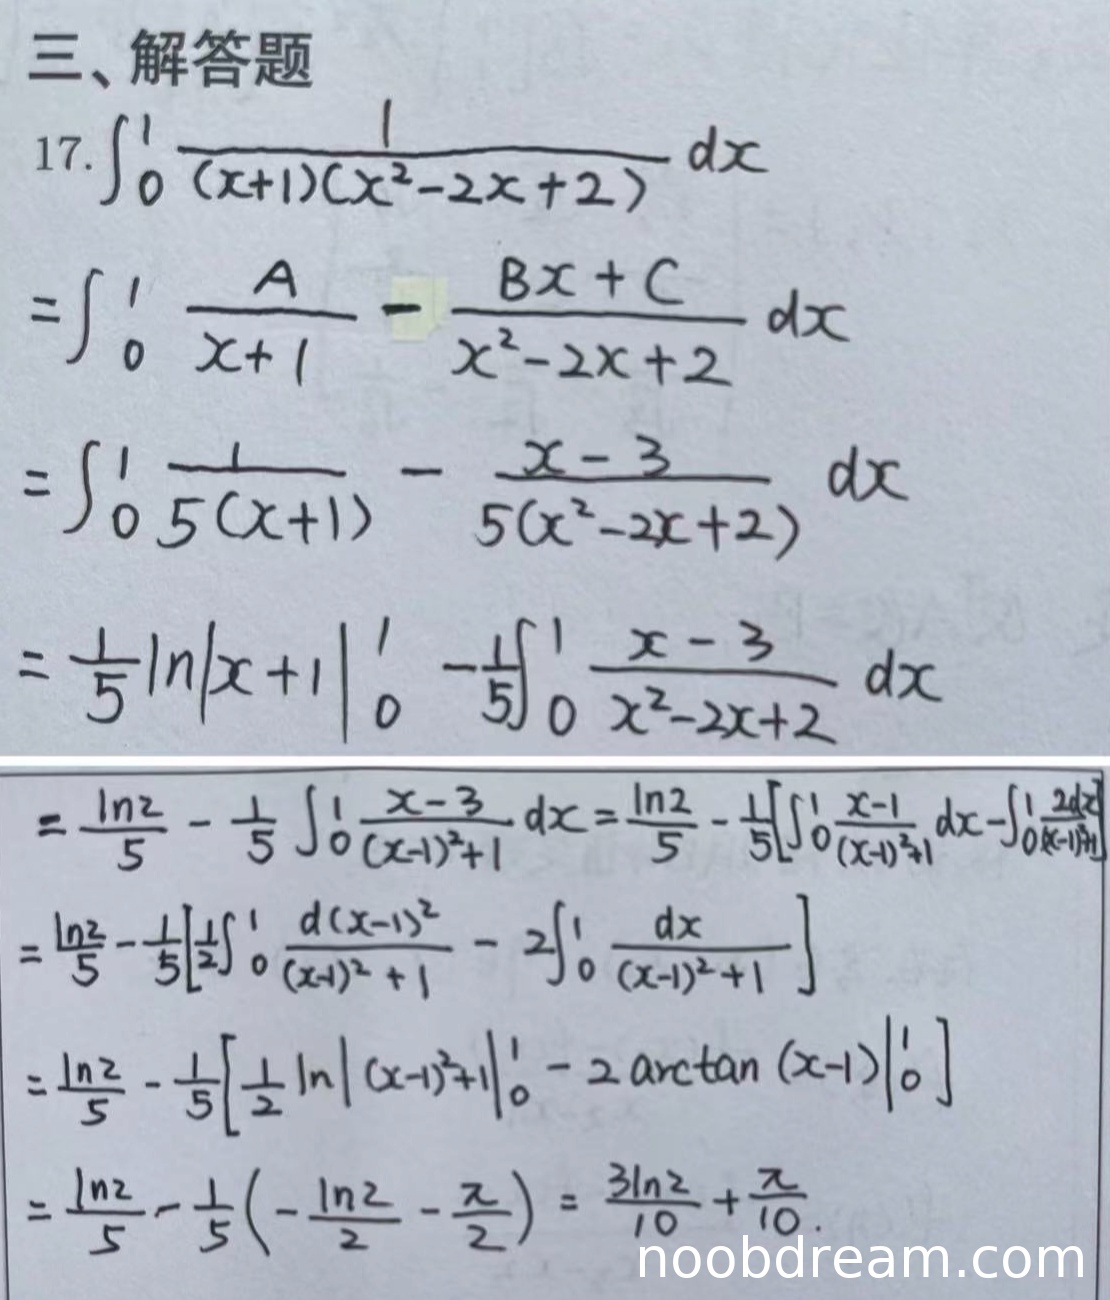 三、解答题
17. ∫₀¹ 1/((x+1)(x²-2x+2)) dx
= ∫₀¹ A/(x+1) - (Bx+C)/(x²-2x+2) dx
= ∫₀¹ 1/(5(x+1)) - (x-3)/(5(x²-2x+2)) dx
= 1/5 ln|x+1| |₀¹ - 1/5 ∫₀¹ (x-3)/(x²-2x+2) dx
= ln2/5 - 1/5 ∫₀¹ (x-3)/((x-1)²+1) dx = ln2/5 - 1/5 [∫₀¹ (x-1)/((x-1)²+1) dx - ∫₀¹ 2dx/((x-1)²+1)]
= ln2/5 - 1/5 [1/2 ∫₀¹ d(x-1)²/((x-1)²+1) - 2∫₀¹ dx/((x-1)²+1)]
= ln2/5 - 1/5 [1/2 ln|(x-1)²+1| |₀¹ - 2 arctan (x-1) |₀¹]
= ln2/5 - 1/5 (- ln2/2 - π/2) = 3ln2/10 + π/10.
noobdream.com